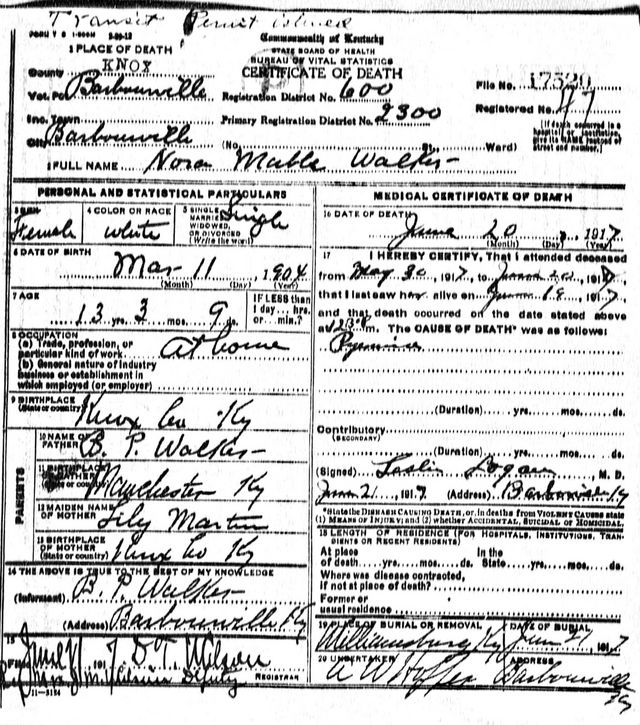 Transit Permit
FORM V S 1-500M 3-20-12
Commonwealth of Kentucky
STATE BOARD OF HEALTH
BUREAU OF VITAL STATISTICS
CERTIFICATE OF DEATH
1 PLACE OF DEATH
KNOX
County
Vot. Pct. Barbourville
Registration District No. 600
File No. 17520
Inc. Town
Primary Registration District No. 2300
Registered No. 47
City Barbourville
(No. St. Ward)
(If death occurred in a hospital or institution, give its NAME instead of street and number.)
2 FULL NAME Nora Mable Walker
PERSONAL AND STATISTICAL PARTICULARS
3 SEX
Female
4 COLOR OR RACE
White
5 SINGLE, MARRIED, WIDOWED, OR DIVORCED (Write the word)
Single
6 DATE OF BIRTH
Mar 11 1904
(Month) (Day) (Year)
7 AGE
13 yrs. 3 mos. 9 ds.
IF LESS than 1 day... hrs. or min.?
8 OCCUPATION
(a) Trade, profession, or particular kind of work
At home
(b) General nature of industry business or establishment in which employed (or employer)
9 BIRTHPLACE
(State or country)
Knox Co Ky
PARENTS
10 NAME OF FATHER
B. P. Walker
11 BIRTHPLACE OF FATHER (State or country)
Manchester Ky
12 MAIDEN NAME OF MOTHER
Lily Martin
13 BIRTHPLACE OF MOTHER (State or country)
Knox Co Ky
14 THE ABOVE IS TRUE TO THE BEST OF MY KNOWLEDGE
(Informant) B. P. Walker
(Address) Barbourville Ky
15
191 7 D. T. Wilson
Deputy
REGISTRAR
11-3184
MEDICAL CERTIFICATE OF DEATH
16 DATE OF DEATH
June 20 1917
(Month) (Day) (Year)
17 I HEREBY CERTIFY, That I attended deceased
from May 30 1917, to June 20 191
that I last saw her alive on June 19 1917
and that death occurred on the date stated above
at m. The CAUSE OF DEATH* was as follows:
(Duration) yrs. mos. ds.
Contributory
(SECONDARY)
(Duration) yrs. mos. ds.
(Signed) Leslie Logan M. D.
June 21 1917 (Address)
*State the DISEASE CAUSING DEATH, or, in deaths from VIOLENT CAUSES state
(1) MEANS OF INJURY; and (2) whether ACCIDENTAL, SUICIDAL OR HOMICIDAL.
18 LENGTH OF RESIDENCE (FOR HOSPITALS, INSTITUTIONS, TRANSIENTS OR RECENT RESIDENTS)
At place of death yrs. mos. ds. In the State yrs. mos. ds.
Where was disease contracted, if not at place of death?
Former or usual residence
19 PLACE OF BURIAL OR REMOVAL
Williamsburg Ky
DATE OF BURIAL
June 21 1917
20 UNDERTAKER
ADDRESS
Barbourville Ky